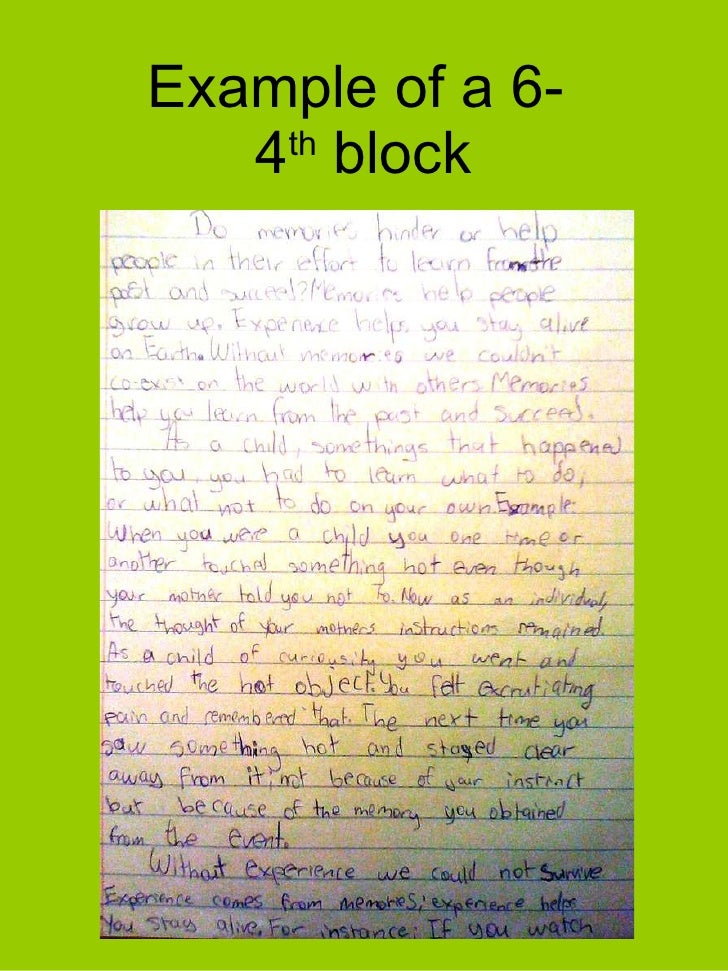 Example of a 6-
4th block
Do memories hinder or help
people in their effort to learn from the
past and succeed? Memories help people
grow up. Experience helps you stay alive
on Earth. Without memories we couldn't
co-exist on the world with others. Memories
help you learn from the past and succeed.
As a child, somethings that happened
to you, you had to learn what to do,
or what not to do on your own. Example:
When you were a child you one time or
another touched something hot even though
your mother told you not to. Now as an individual,
the thought of your mothers instructions remained.
As a child of curiousity you went and
touched the hot object. You felt excrutiating
pain and remembered that. The next time you
saw something hot and stayed clear
away from it; not because of your instinct
but because of the memory you obtained
from the event.
Without experience we could not survive
Experience comes from memories; experience helps
you stay alive. For instance: If you watch